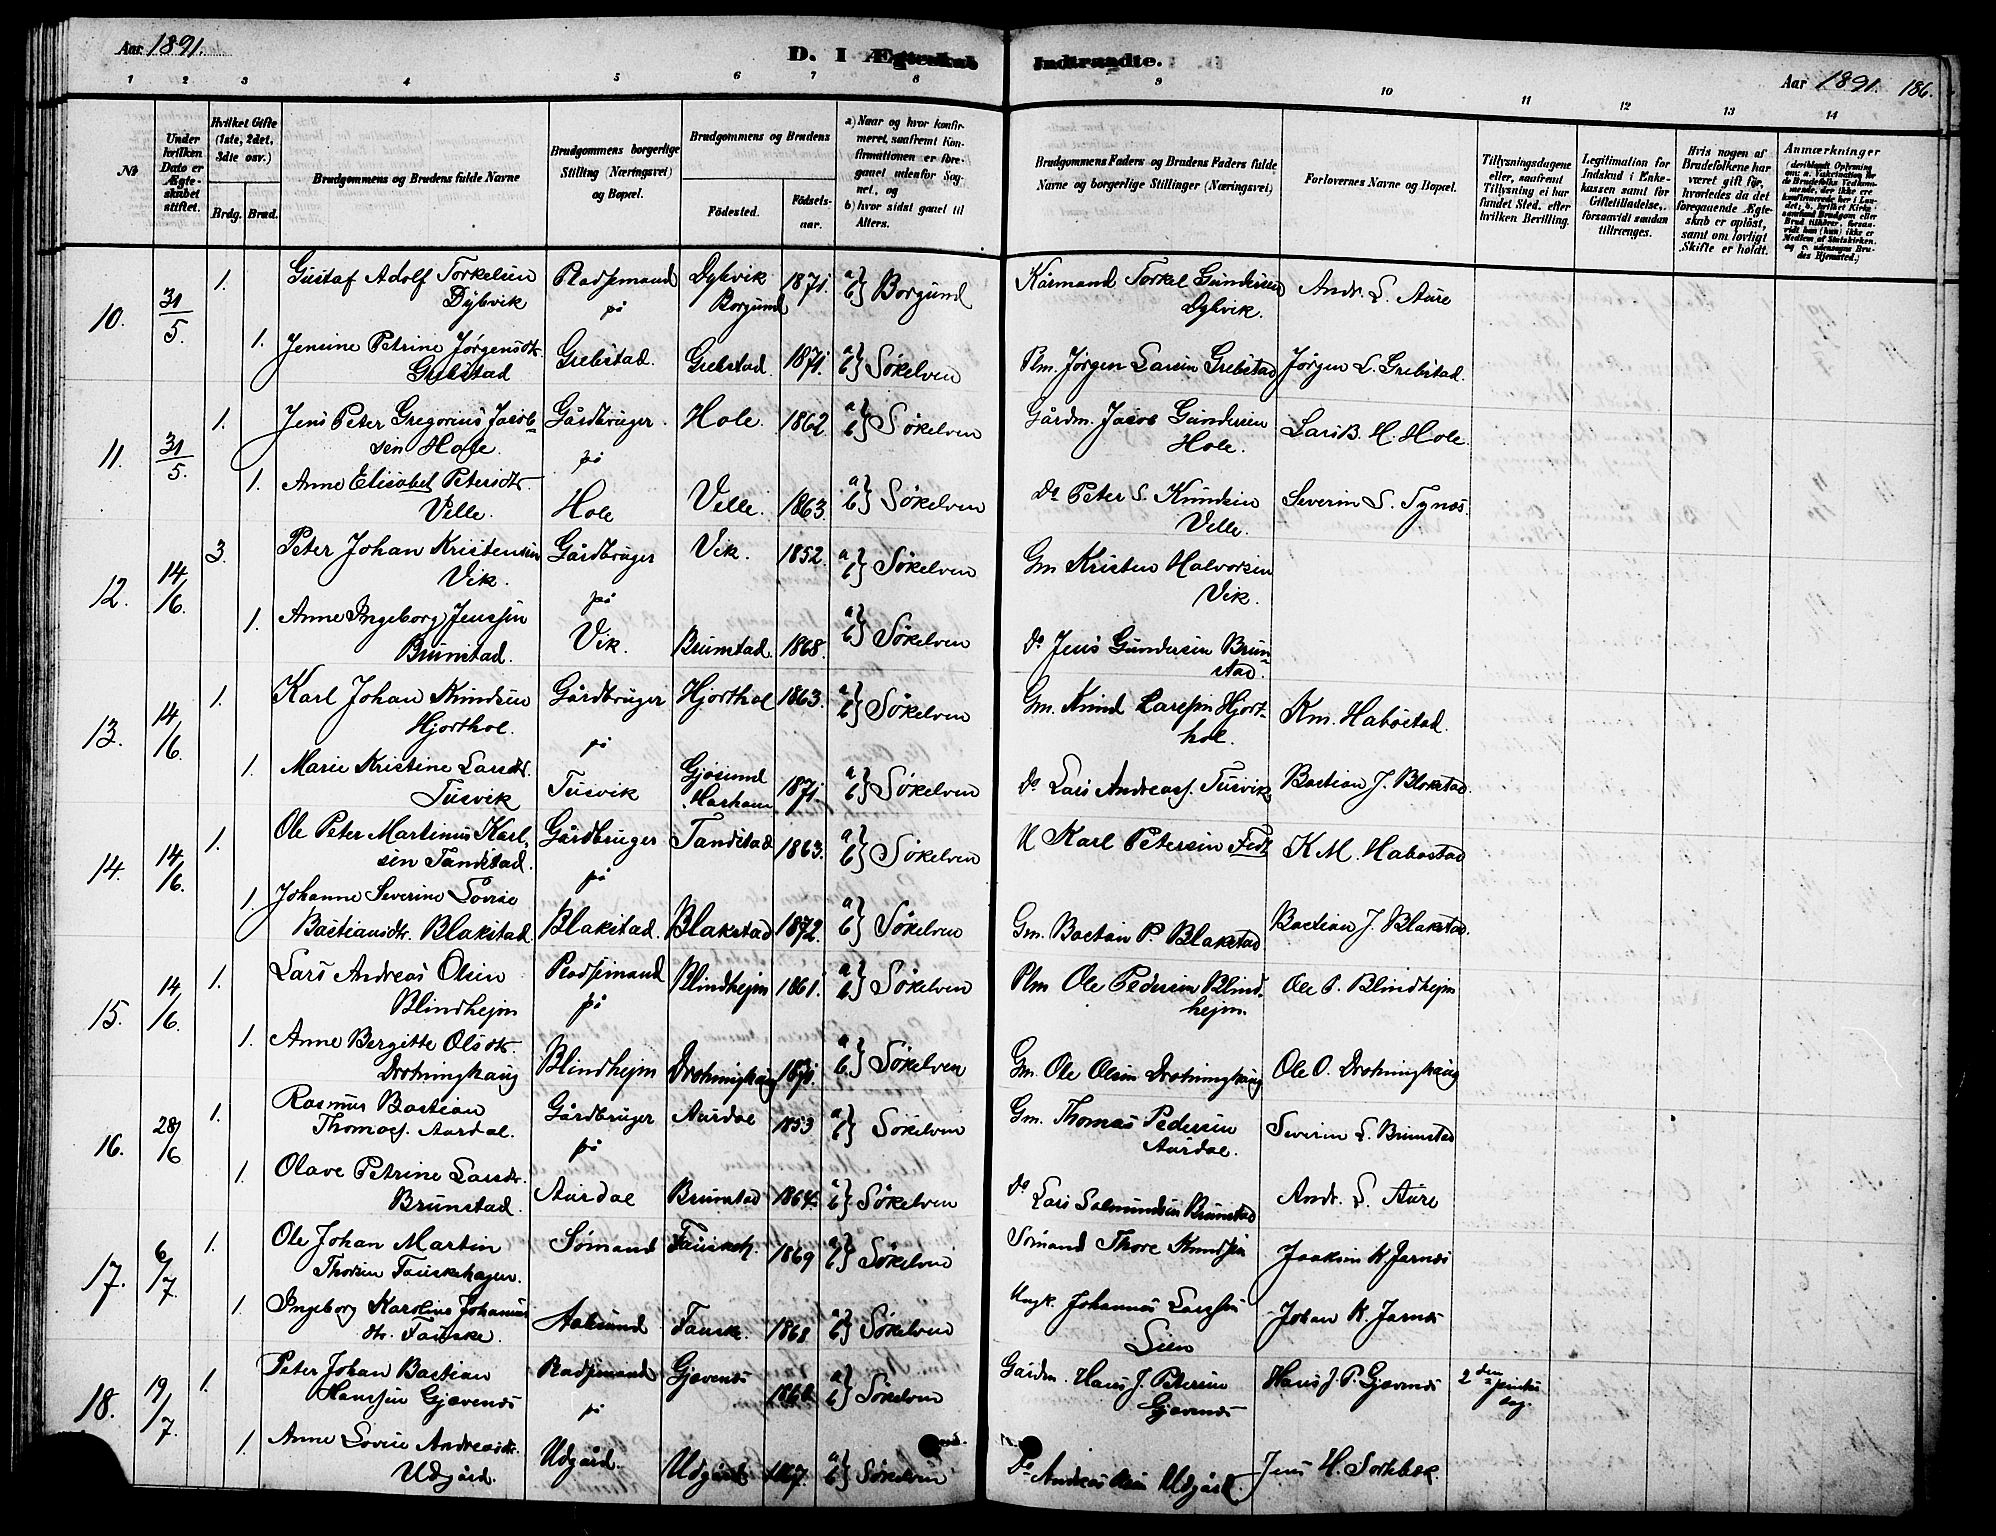 Aar 1891.
D. I Ægteskab Indtraadte.
Aar 1891. 186.
1 2 3 4 5 6 7 8 9 10 11 12 13 14
No
Under hvilken Dato er Ægteskabet stiftet.
Hvilket Gifte (1ste, 2det, 3die osv.)
Brdg. Brud.
Brudgommens og Brudens fulde Navne
Brudgommens borgerlige Stilling (Næringsvei) og Bopæl.
Brudgommens og Brudens
Fødested.
Fødselsaar.
a) Naar og hvor konfirmeret, saafremt Konfirmationen er foregaaet udenfor Sognet, og
b) hvor sidst gaaet til Alters.
Brudgommens Faders og Brudens Faders fulde Navne og borgerlige Stillinger (Næringsvei)
Forlovernes Navne og Bopæl.
Tillysningsdagene eller, saafremt Tillysning ei har fundet Sted, efter hvilken Bevilling.
Legitimation for Indskud i Enkekassen samt for Giftetilladelse, forsaavidt saadan tiltrænges.
Hvis nogen af Brudefolkene har været gift før, hvorledes da det foregaaende Ægteskab er opløst, samt om lovligt Skifte er holdt.
Anmærkninger
10. 31/5 1. Gustaf Adolf Torkelsen Pladsmand Dybvik 1871. a b} Borgund Kårmand Torkel Gundersen Andr. L. Aure
Dybvik på Borgund Dybvik.
1. Jensine Petrine Jørgensdtr. Grebstad. Grebstad. 1871. a b} Søkelven Plm. Jørgen Larsen Grebstad Jørgen L. Grebstad.
Grebstad
11. 31/5 1. Jens Peter Gregorius Jacob- Gårdbruger Hole 1862 a b} Søkelven Gårdm. Jacob Gundersen Lars B. H. Hole.
sen Hole. på Hole.
1. Anne Elisabet Petersdtr. Hole Velle. 1863. a b} Søkelven Do Peter S. Knudsen Severin S. Tynes.
Velle. Velle.
12. 14/6. 3. Peter Johan Kristensen Gårdbruger Vik. 1852. a b} Søkelven Gm Kristen Halvorsen
Vik. på Vik.
1. Anne Ingeborg Jenssen Vik. Brunstad. 1868. a b} Søkelven Do Jens Gundersen Brun-
Brunstad. stad.
13. 14/6. 1. Karl Johan Knudsen Gårdbruger Hjorthol 1863. a b} Søkelven Gm. Knud Larssen Hjort- Km. Habostad.
Hjorthol. på hol.
1. Marie Kristine Larsdtr. Tusvik Gjøsund Harham 1871. a b} Søkelven Do Lars Andreass. Tusvik Bastian J. Blakstad.
Tusvik
14. 14/6. 1. Ole Peter Martinus Karl- Gårdbruger Tandstad 1863. a b} Søkelven Karl Petersen K M. Habostad
sen Tandstad. på
1. Johanne Severine Lovise
Bastiansdtr. Blakstad. Blakstad. Blakstad 1872. a b} Søkelven Gm. Bastian P. Blakstad Bastian J. Blakstad.
15. 14/6. 1. Lars Andreas Olsen Pladsmand Blindhejm 1861. a b} Søkelven Plm Ole Pedersen Blind- Ole P. Blindhejm
Blindhejm på hejm.
1. Anne Bergitte Olsdtr. Blindhejm Drotninghaug 1871. a b} Søkelven Gm. Ole Olsen Drotninghaug Ole O. Drotninghaug
Drotninghaug
16. 28/6 1. Rasmus Bastian Gårdbruger Aurdal 1853 a b} Søkelven Gm. Thomas Pedersen Severin L. Brunstad
Thomass. Aurdal. på Aurdal.
1. Olave Petrine Larsdtr. Aurdal Brunstad 1864. a b} Søkelven Do Lars Salmundsen Brunstad Andr. L. Aure
Brunstad.
17. 6/7. 1. Ole Johan Martin Sømand Fauskeh. 1869 a b} Søkelven Sømand Thore Knudsen Joakim K. Jarnes
Thoresen Fauskehagen.
1. Ingeborg Karolius Johannes Aalesund Fauske. 1868 a b} Søkelven Ungk. Johannes Larssen Johan K. Jarnes
dtr. Fauske. Lien
18. 19/7. 1. Peter Johan Bastian Pladsmand Gjævenes a b} Søkelven Gårdm. Hans J. Petersen Hans J. P. Gjævenes 2den pintse
Hanssen Gjævenes på Gjævenes dag.
1. Anne Lovise Andreasdtr. Udgård. Udgård 1867. a b} Søkelven Do Andreas Udgård. Jens H.
Udgård.